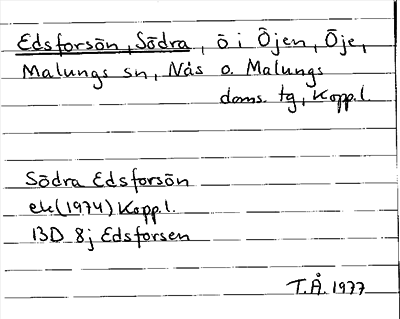 Edsforsön, Södra, ö i Öjen, Öje,
Malungs sn, Nås o. Malungs
doms. tg, Kopp.l.
Södra Edsforsön
ek(1974) Kopp.l.
13D 8j Edsforsen
T.Å. 1977